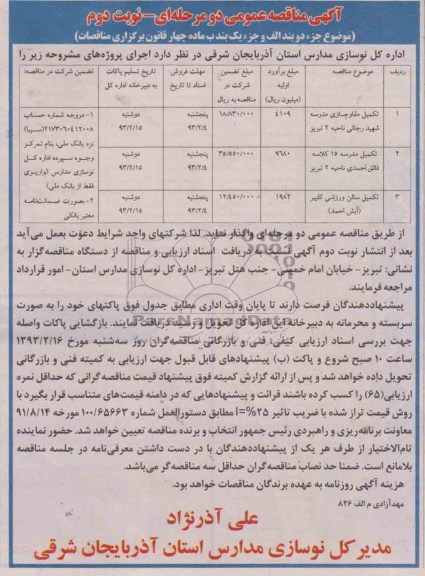 آگهی مناقصه عمومی دو مرحله‌ای – نوبت دوم
(موضوع جزء دو بند الف و جزء یک بند ب ماده چهار قانون برگزاری مناقصات)
اداره کل نوسازی مدارس استان آذربایجان شرقی در نظر دارد اجرای پروژه‌های مشروحه زیر را
ردیف | موضوع مناقصه | مبلغ برآورد اولیه (میلیون ریال) | مبلغ تضمین شرکت در مناقصه به ریال | مهلت فروش اسناد تا تاریخ | تاریخ تسلیم پاکات به دبیرخانه اداره کل | تضمین شرکت در مناقصه:
۱ | تکمیل مقاوم‌سازی مدرسه شهید رجائی ناحیه ۲ تبریز | ۴۱۰۹ | ۱۸/۸۳۰/۰۰۰ | پنجشنبه ۹۳/۲/۴ | دوشنبه ۹۳/۲/۱۵
۲ | تکمیل مدرسه ۱۵ کلاسه فائق احمدی ناحیه ۲ تبریز | ۹۶۸۰ | ۳۵/۵۵۰/۰۰۰ | پنجشنبه ۹۳/۲/۴ | دوشنبه ۹۳/۲/۱۵
۳ | تکمیل سالن ورزشی کلیبر (آبش احمد) | ۱۹۸۲ | ۱۲/۴۵۰/۰۰۰ | پنجشنبه ۹۳/۲/۴ | دوشنبه ۹۳/۲/۱۵
۱- دروجه شماره حساب
۲۱۷۳۰۶۰۴۱۲۰۰۸ (سیبا)
نزد بانک ملی، بنام تمرکز
وجوه سپرده اداره کل
نوسازی مدارس (واریزی
فقط از بانک ملی)
۲- بصورت ضمانت‌نامه
معتبر بانکی
از طریق مناقصه عمومی دو مرحله‌ای واگذار نماید. لذا شرکتهای واجد شرایط دعوت بعمل می‌آید
بعد از انتشار نوبت دوم آگهی نسبت به دریافت اسناد ارزیابی و مناقصه از دستگاه مناقصه‌گزار به
نشانی: تبریز - خیابان امام خمینی - جنب هتل تبریز - اداره کل نوسازی مدارس استان - امور قرارداد
مراجعه فرمایند.
پیشنهاددهندگان فرصت دارند تا پایان وقت اداری مطابق جدول فوق پاکتهای خود را به صورت
سربسته و محرمانه به دبیرخانه این اداره کل تحویل و رسید دریافت نمایند. بازگشایی پاکات واصله
جهت بررسی اسناد ارزیابی کیفی، فنی و بازرگانی مناقصه‌گران روز سه‌شنبه مورخ ۱۳۹۳/۲/۱۶
ساعت ۱۰ صبح شروع و پاکت (ب) پیشنهادهای قابل قبول جهت ارزیابی به کمیته فنی و بازرگانی
تحویل داده خواهد شد و پس از ارائه گزارش کمیته فوق پیشنهاد قیمت مناقصه‌گرانی که حداقل نمره
ارزیابی(۶۵) را کسب کرده باشند قرائت و پیشنهادهایی که در دامنه قیمت‌های متناسب قرار بگیرد با
روش قیمت تراز شده با ضریب تاثیر ۲۵%=i مطابق دستورالعمل شماره ۱۰۰/۶۵۶۶۳ مورخه ۹۱/۸/۱۴
معاونت برنامه‌ریزی و راهبردی رئیس جمهور انتخاب و برنده مناقصه تعیین خواهد شد. حضور نماینده
تام‌الاختیار از طرف هر یک از پیشنهاددهندگان با در دست داشتن معرفی‌نامه در جلسه مناقصه
بلامانع است. ضمنا حد نصاب مناقصه گران حداقل سه مناقصه‌گر می‌باشد.
هزینه آگهی روزنامه به عهده برندگان مناقصات خواهد بود.
مهدآزادی م الف ۸۲۶
علی آذرنژاد
مدیر کل نوسازی مدارس استان آذربایجان شرقی